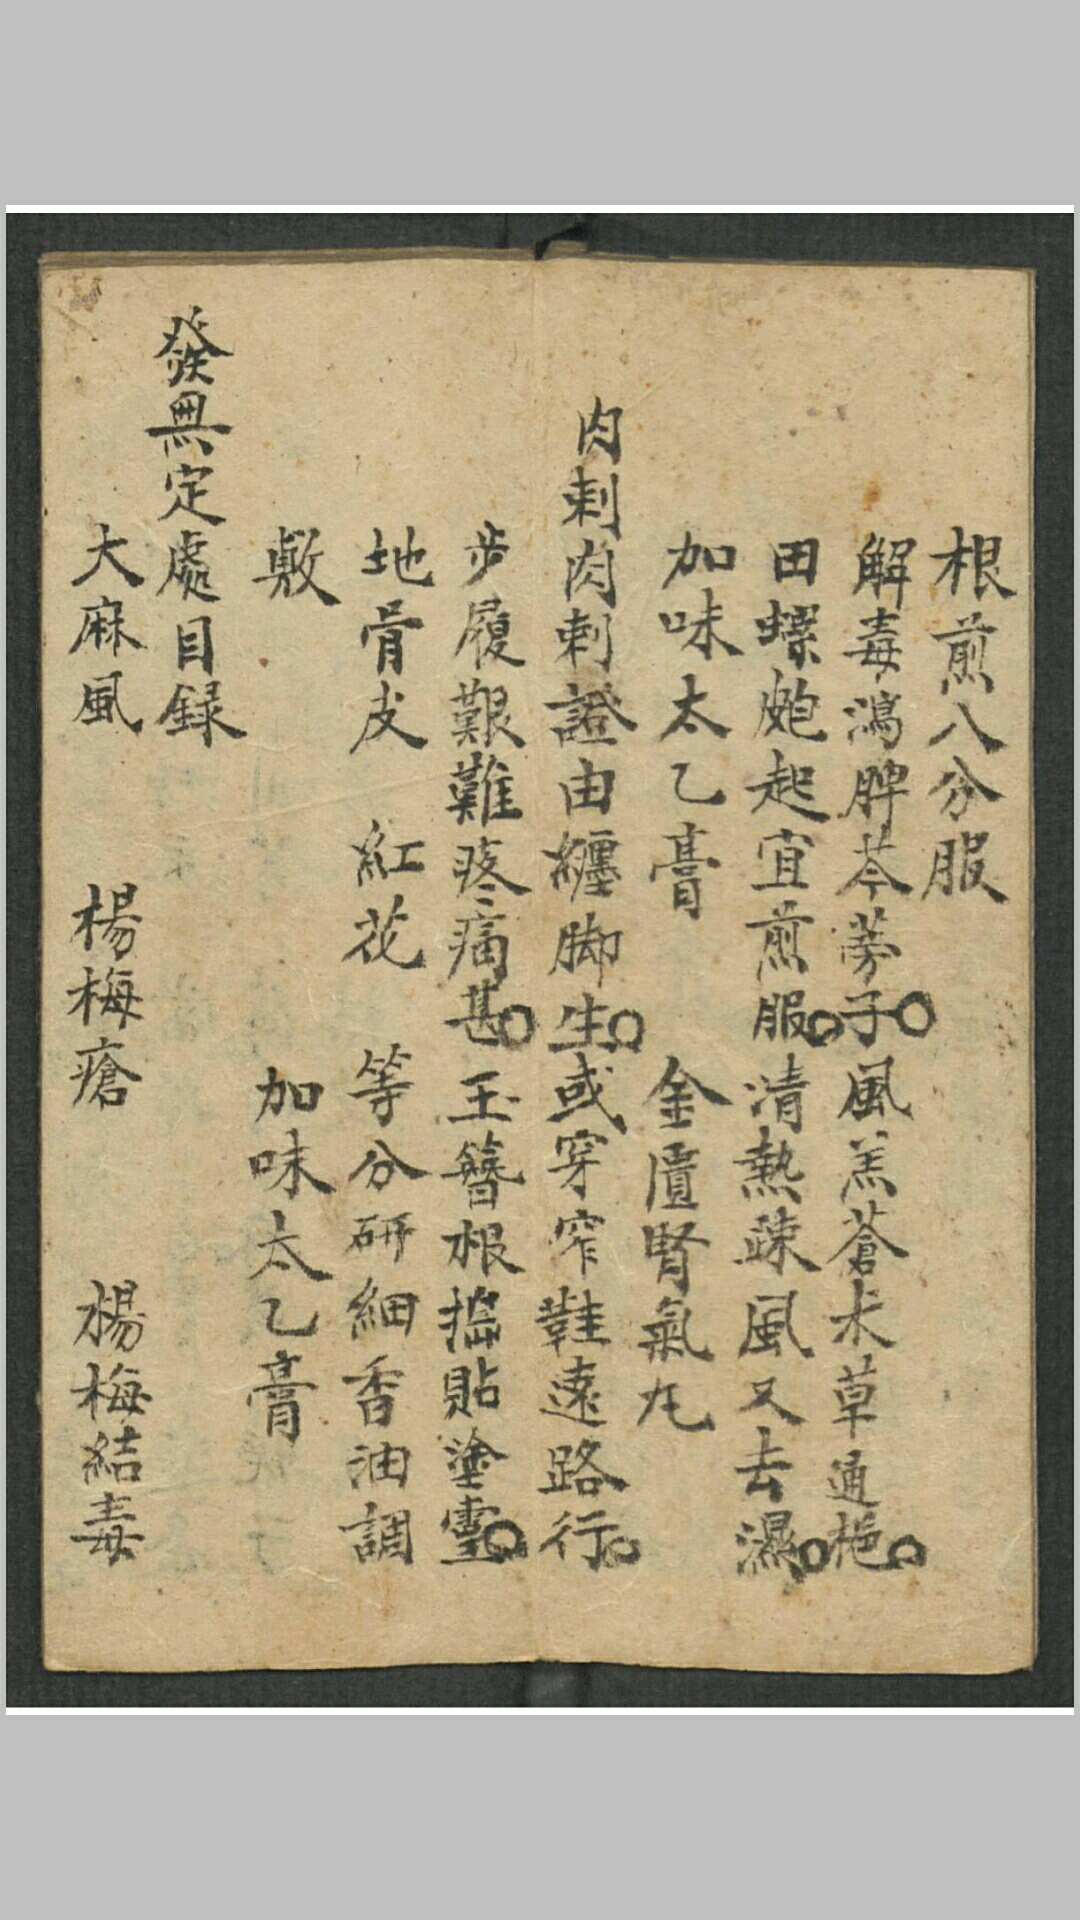 根煎八分服
解毒瀉脾芩蒡子風羔蒼术草通梔
田螺皰起宜煎服清熱疎風又去濕
加味太乙膏 金匱腎氣丸
肉刺肉刺證由纏脚生或穿窄鞋遠路行
步履艱難疼痛甚玉簪根搗貼塗靈
地骨皮 紅花 等分研細香油調
敷 加味太乙膏
發無定處目録
大麻風 楊梅瘡 楊梅結毒